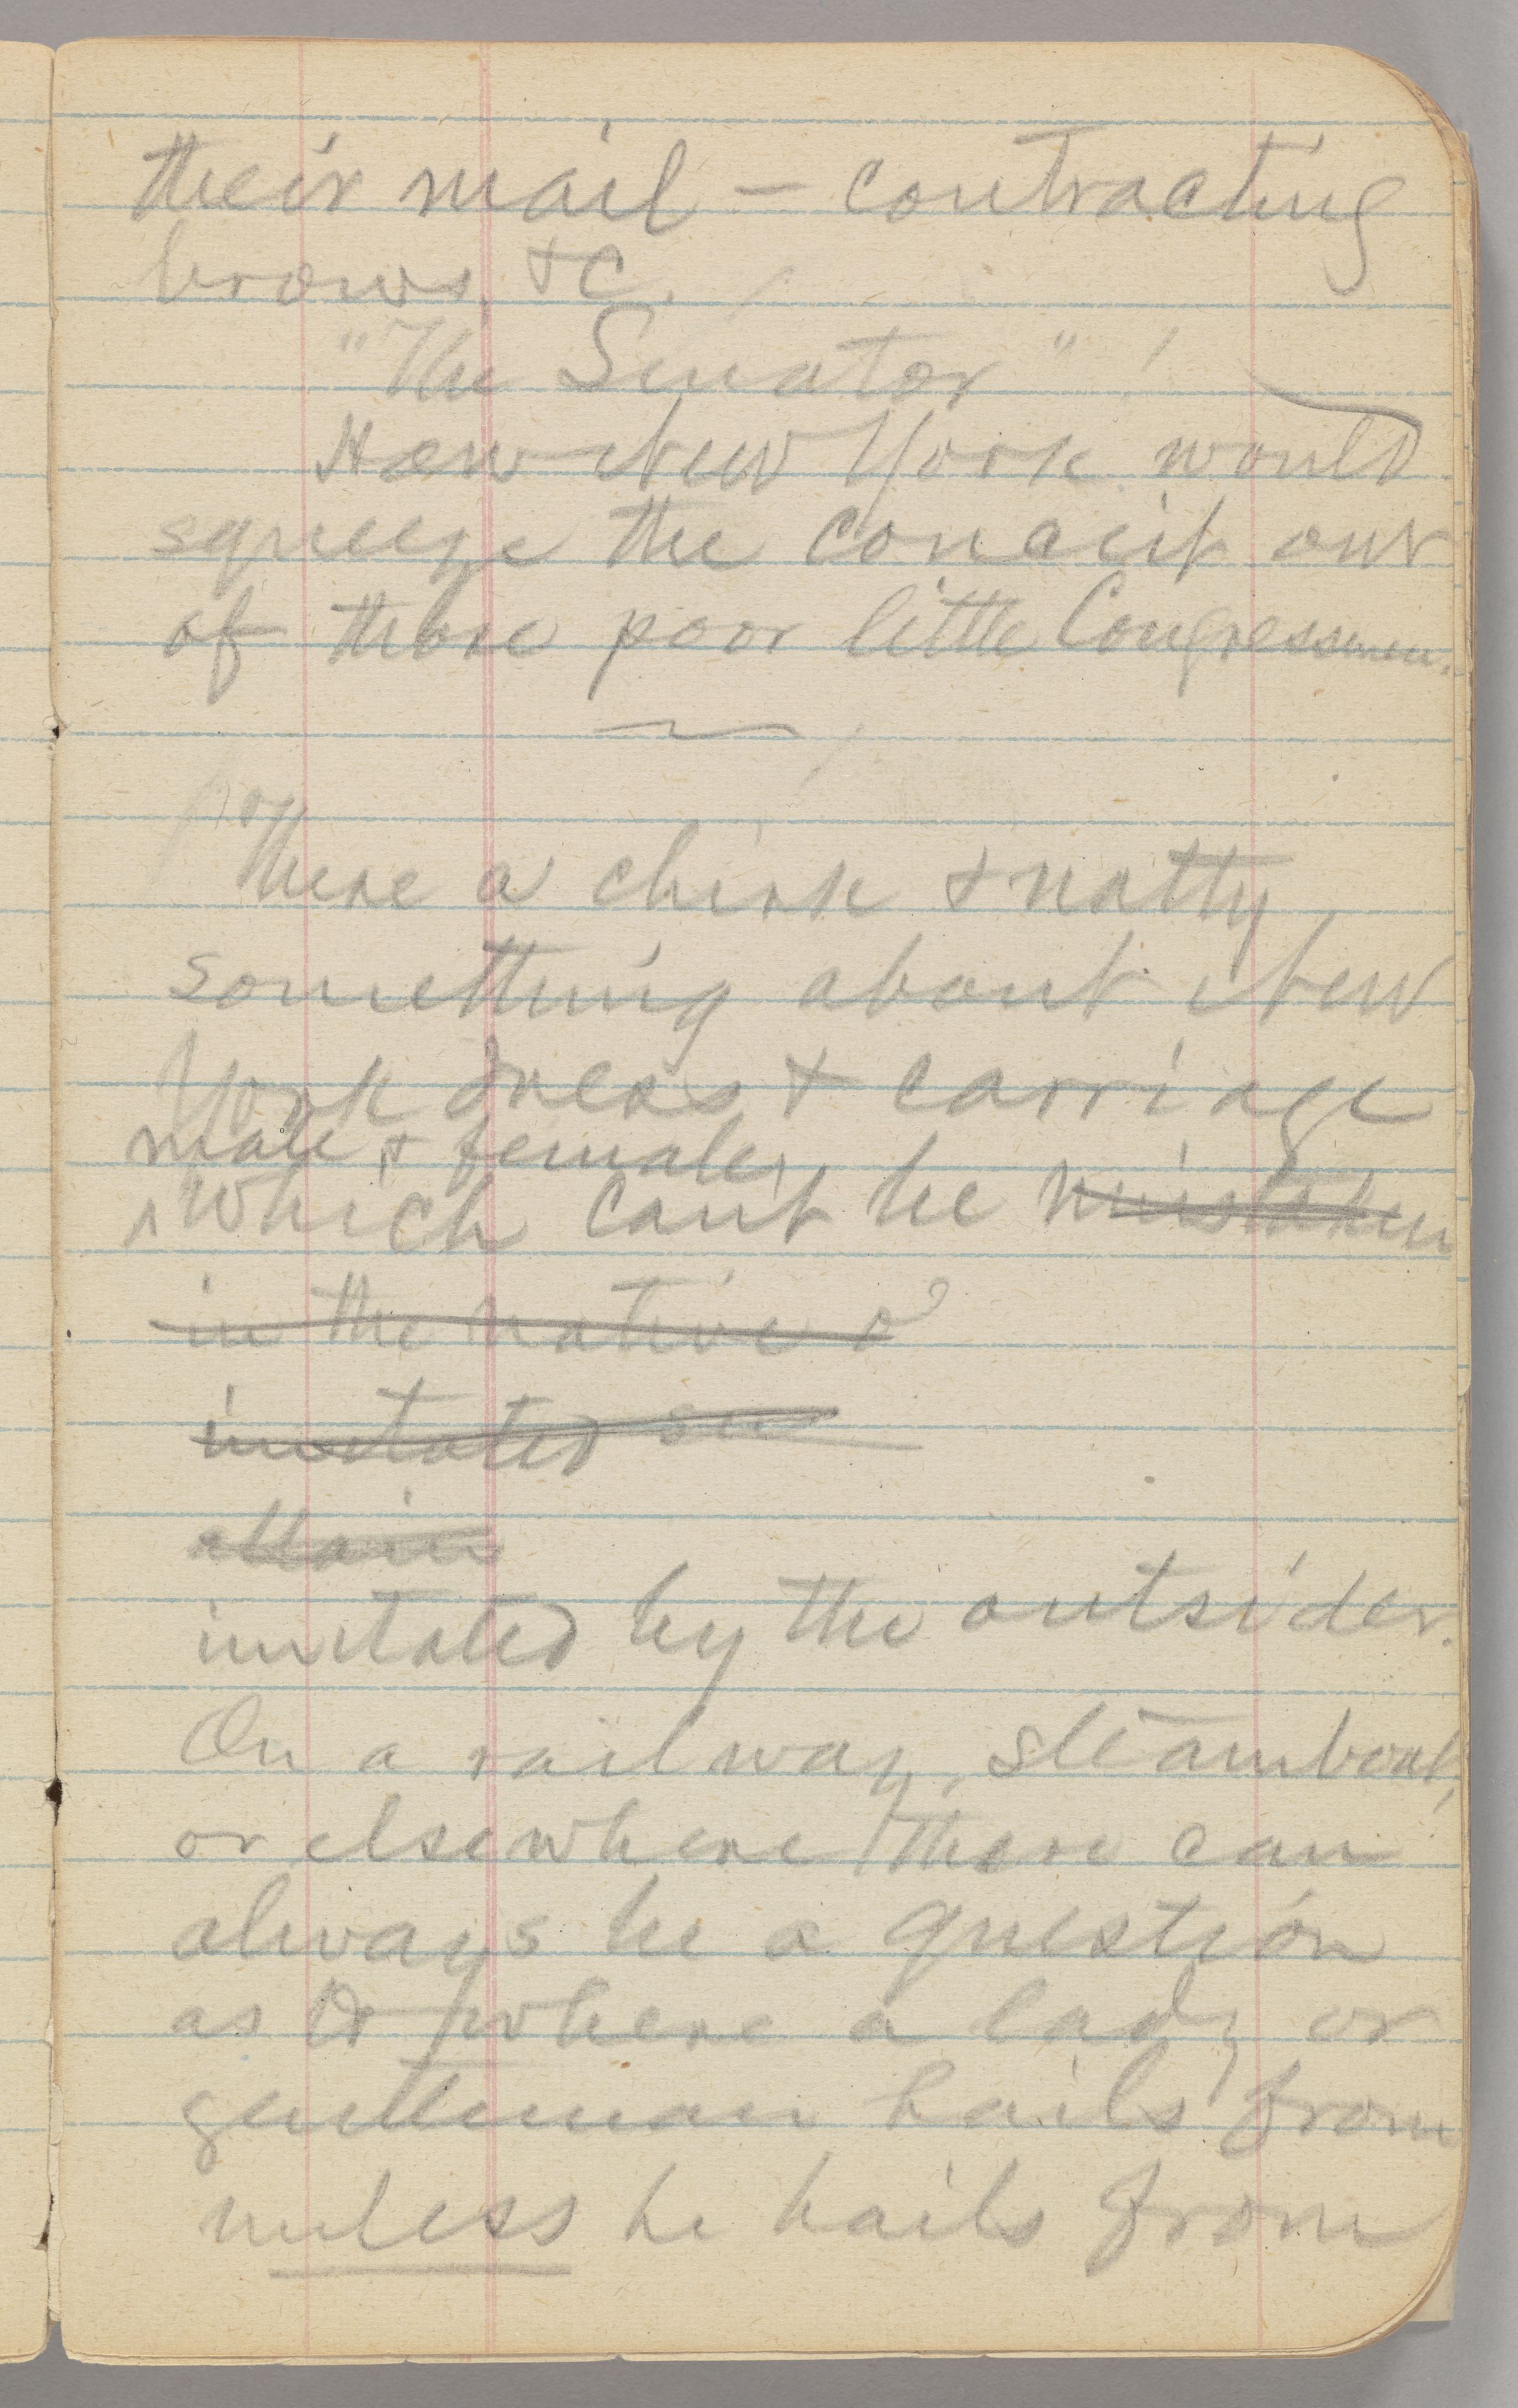 their mail — contracting
brows, &c.
"The Senator"!
How New York would
squeeze the conceit out
of those poor little Congressmen.
There a chirk & natty
something about New
York dress & carriage
male & female,
which can't be mistaken
in the native &
imitated su
attain
imitated by the outsider.
On a railway, steamboat,
or elsewhere there can
always be a question
as to where a lady or
gentleman hails from
unless he hails from